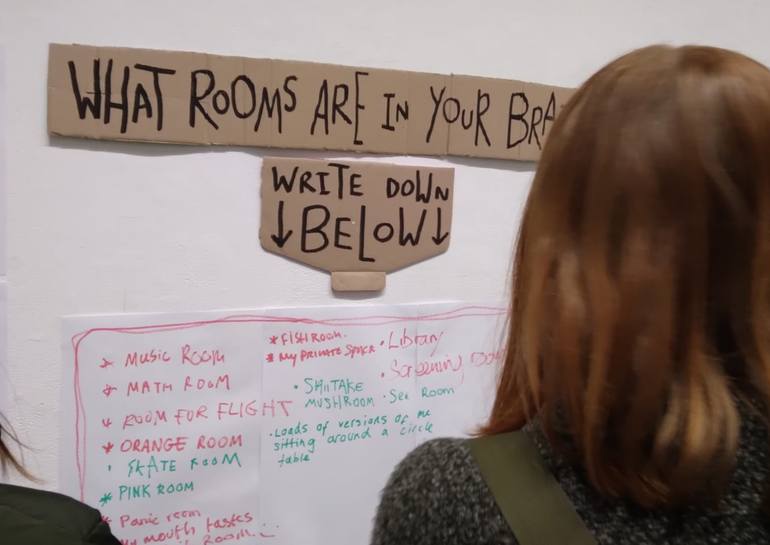 WHAT ROOMS ARE IN YOUR BRA
WRITE DOWN
↓ BELOW ↓
MUSIC ROOM
MATH ROOM
ROOM FOR FLIGHT
* ORANGE ROOM
SKATE ROOM
* PINK ROOM
* Panic room
my mouth tastes
Room
* FISH ROOM.
* MY PRIVATE SPACE
• SHIITAKE
MUSHROOM
• Loads of versions of me
sitting around a circle
table
• Library
• Screaming room
• Sex Room